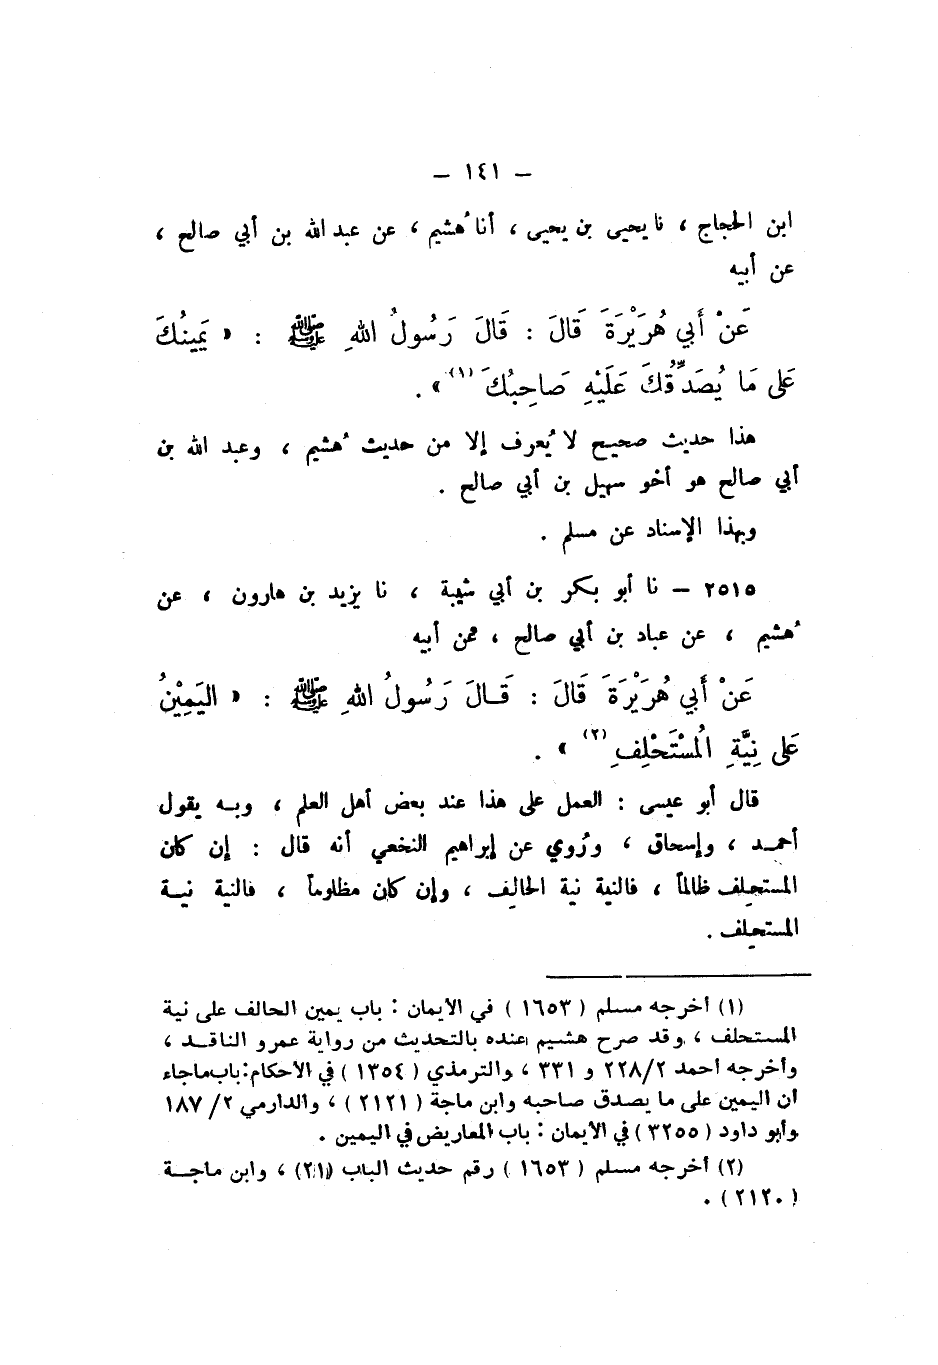 – ١٤١ –
ابن الحجاج ، نا يحيى بن يحيى ، أنا هُشيم ، عن عبد الله بن أبي صالح ،
عن أبيه
عَنْ أَبِي هُرَيْرَةَ قَالَ : قَالَ رَسُولُ اللهِ ﷺ : « يَمِينُكَ
عَلى مَا يُصَدِّقُكَ عَلَيْهِ صَاحِبُكَ (١) » .
هذا حديث صحيح لا يُعرف إلا من حديث هُشيم ، وعبد الله بن
أبي صالح هو أخو سهيل بن أبي صالح .
وبهذا الإسناد عن مسلم .
٢٥١٥ – نا أبو بكر بن أبي شيبة ، نا يزيد بن هارون ، عن
هُشيم ، عن عباد بن أبي صالح ، عن أبيه
عَنْ أَبِي هُرَيْرَةَ قَالَ : قَالَ رَسُولُ اللهِ ﷺ : « اليَمِيْنُ
عَلى نِيَّةِ الْمُسْتَحْلِفِ (٢) » .
قال أبو عيسى : العمل على هذا عند بعض أهل العلم ، وبه يقول
أحمد ، وإسحاق ، ورُوي عن إبراهيم النخعي أنه قال : إن كان
المستحلف ظالماً ، فالنية نية الحالف ، وإن كان مظلوماً ، فالنية نية
المستحلف .
(١) أخرجه مسلم ( ١٦٥٣ ) في الأيمان : باب يمين الحالف على نية
المستحلف ، وقد صرح هشيم عنده بالتحديث من رواية عمرو الناقد ،
وأخرجه أحمد ٢٢٨/٢ و ٣٣١ ، والترمذي ( ١٣٥٤ ) في الأحكام: باب ماجاء
أن اليمين على ما يصدق صاحبه وابن ماجة ( ٢١٢١ ) ، والدارمي ٢/ ١٨٧
وأبو داود ( ٣٢٥٥ ) في الأيمان : باب المعاريض في اليمين .
(٢) أخرجه مسلم ( ١٦٥٣ ) رقم حديث الباب (٢١) ، وابن ماجة
( ٢١٢٠ ) .